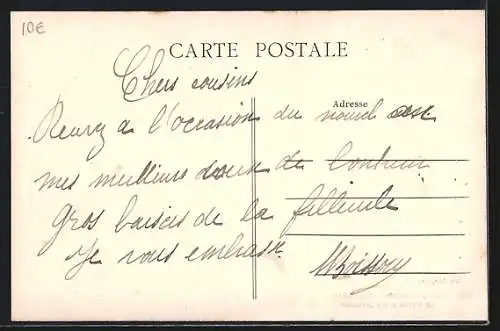 10€
CARTE POSTALE
Adresse
Chers cousins
Recevez a l'occasion du nouvel an
mes meilleurs vœux de bonheur
Gros baisers de la filleule
Je vous embrasse